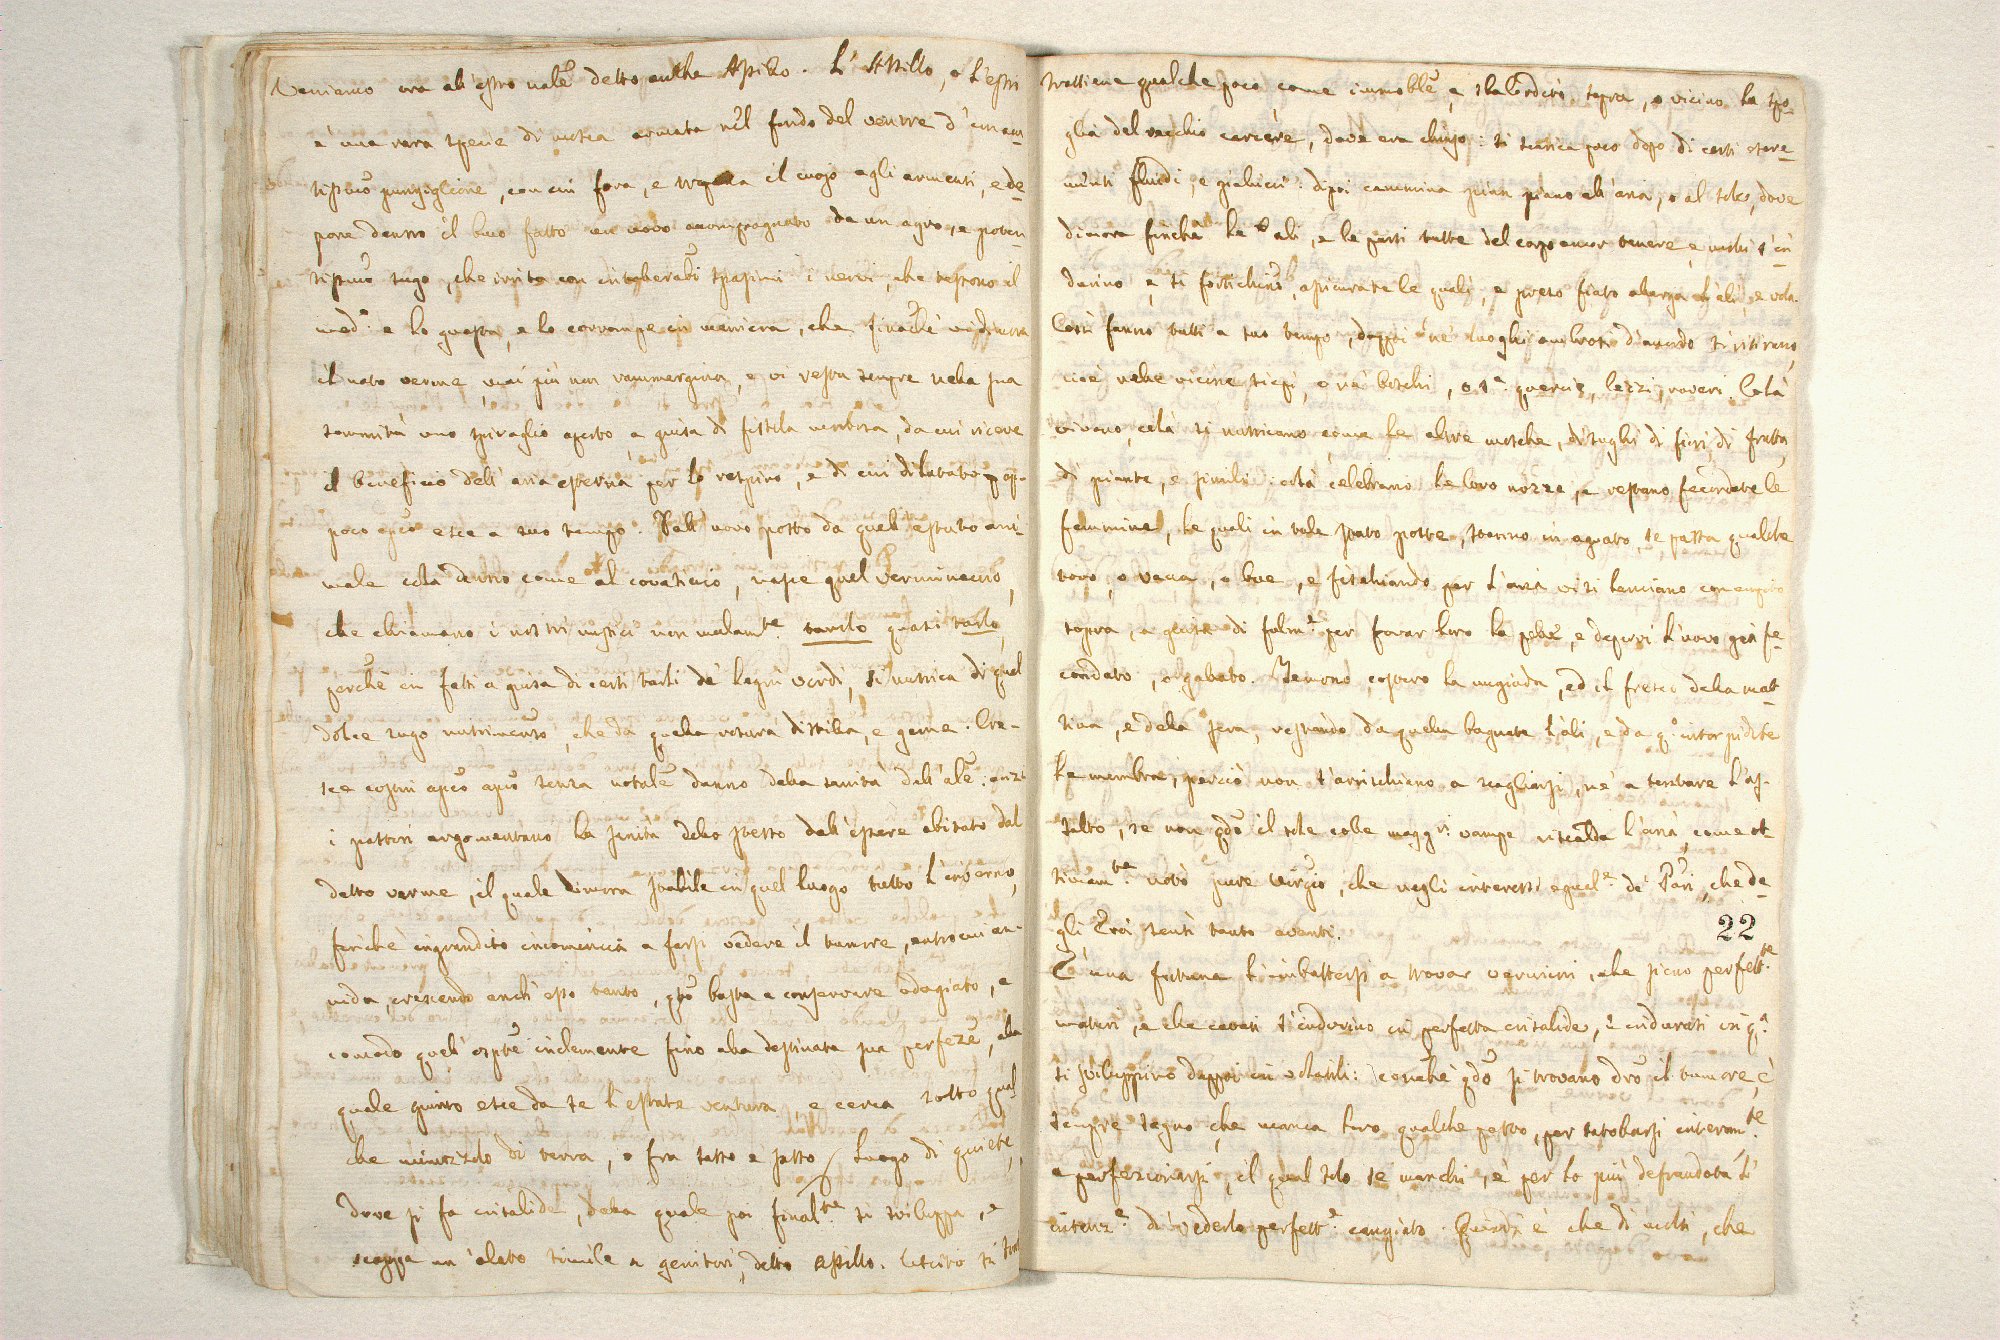 Veniamo ora all'estro nale detto anche Assillo. L'Assillo, o l'estro
è una rara spezie di mosca armata nel fondo del ventre d'un acu
tissimo pungiglione, con cui fora, e trapana il cuojo agli armenti, e de
pone dentro il buco fatto un uovo accompagnato da un agro, e poten
tissimo sugo, che irrita con intolerabili spasimi i nervi, che tessono il
med.o e lo guasta, e lo corrompe in maniera, che finchè vi dimora
il nato verme, mai più non rammargina, e vi resta sempre nella sua
sommità uno spiraglio aperto, a guisa di fistola verbosa, da cui riceve
il beneficio dell'aria esterna per lo respiro, e di cui dilatato ap-
poco apoco esce a suo tempo. Dall'uovo posto da quell'estrato ani-
male colà dentro come al covaticcio, nasce quel verminaccio,
che chiamano i nostri rustici non malam.te tarolo quasi tarlo,
perchè in fatti a guisa di certi tarli de' legni verdi, si nutrica di quel
dolce sugo nutrimento, che da quella rottura distilla, e geme. Cre-
sce cosini apoco apoco senza notale danno della sanità dell'ale: anzi
i pastori argomentano la sanità dello stesso dall'essere abitato dal
detto verme, il quale dimora stabile in quel luogo tutto l'inverno,
finchè ingrandito incomincia a farsi vedere il tumore, entro cui an-
nida, crescendo anch'esso tanto, qto basta a conservare adagiato, e
comodo quell'ospite inclemente fino alla destinata sua perfeze, alla
quale giunto esce da se l'estate ventura, e cerca sotto qual
che minuzzolo di terra, o fra sasso e sasso luogo di quiete,
dove si fa crisalide, dalla quale poi final.te si sviluppa, e
scappa un alato simile a genitori, detto assillo. Uscito si trat
trattiene qualche poco come immoble, e sbalordito sopra, o vicino la spo-
glia del vecchio carcere, dove era chiuso: si scarica poco dopo di certi escre-
menti fluidi, e gialucci: dipoi cammina pian piano all'aria, o al sole, dove
dimora finchè le ali, e le parti tutte del corpo ancor tenere, e molli s'in
durino e si fortichino, assicurate le quali, e preso fiato allarga l'ali, e vola.
Così fanno tutti a suo tempo, doppoi ne' luoghi ambrosi d'avendo si ritirano,
cioè nelle vicine siepi, o ne' boschi, o s.a quercie, lezzi, roveri. Colà
vivono, colà si nutricano come le altre mosche, di sughi di fiori, di frutta,
di piante, e simili: colà celebrano le loro nozze, e restano fecondate le
femmine, le quali in tale stato poste, stanno in aguato, se passa qualche
toro, o vacca, o bue, e fischiando per l'aria vi si lanciano con empito
sopra, a guisa di fulm.e per forar loro la pelle, e deporvi l'uovo già fe-
condato, o gallato. Temono, espero la rugiada, ed il fresco della mat
tina, e della sera, restando da quella bagnate l'ali, e da q.o intorpidite
le membra, perciò non s'arrischiano a scagliarsi, nè a tentare l'as-
salto, se non qdo il sole colle magg.ri vampe riscalda l'aria, come ot-
timam.te notò pure Virgilio, che negli interessi egual.e de' Tori, che de
gli Eroi sentì tanto avanti.
22
È una fortuna l'imbattersi a trovar vermicini, che sieno perfett.te
maturi, e che cavati s'indurino in perfetta crisalide, e indurati in q.a
si sviluppino dappoi in volatili: conchè qdo si trovano dro il tumore, è
sempre segno, che manca loro qualche pesto, per satollarsi interam.te
e perfezionarsi, il qual solo se manchi, è per lo più defraudata l'
intenz.e di vederlo perfett.e cangiato. Quindi è che di molti, che